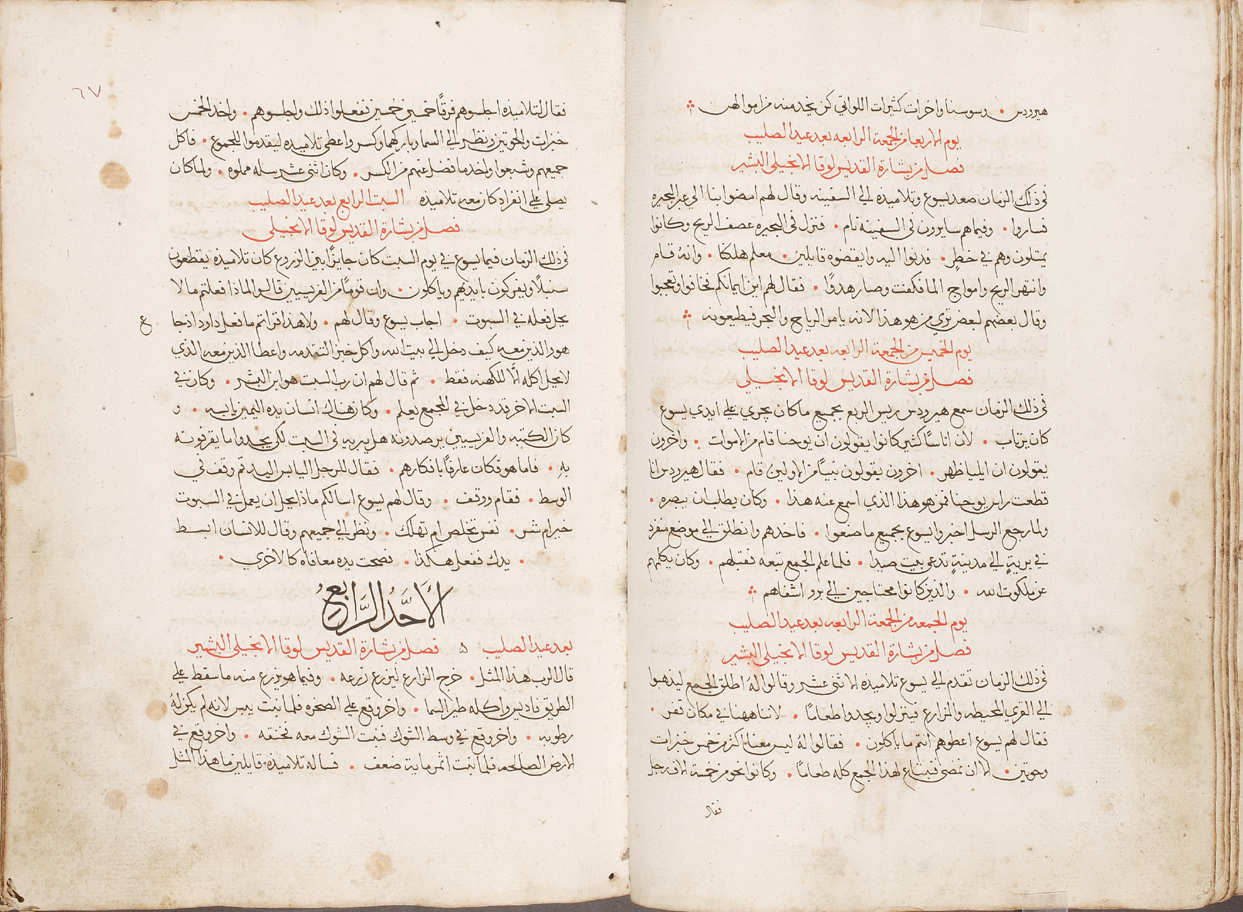 هيرودس ٠ وسوسنا واخرات كثيرات اللواتي كن يخدمنه من اموالهن
يوم الاربعا من الجمعة الرابعه بعد عيد الصليب
فصل من بشارة القديس لوقا الانجيلي البشير
في ذلك الزمان صعد يسوع وتلاميذه الي السفينه وقال لهم امضوا بنا الي عبر البحيره
فساروا ٠ وفيما هم سايرون في السفينه نام ٠ فنزل في البحيره عصف الريح وكانوا
يمتلون وهم في خطر ٠ فدنوا اليه وايقضوه قايلين ٠ معلم هلكنا ٠ وانه قام
وانتهر الريح وامواج الما فكفت وصار هدوًا ٠ فقال لهم اين ايمانكم فخافوا وتعجبوا
وقال بعضهم لبعض تري من هو هذا لانه يامر الرياح والبحر فيطيعونه
يوم الخميس من الجمعة الرابعه بعد عيد الصليب
فصل من بشارة القديس لوقا الانجيلي
في ذلك الزمان سمع هيرودس ريس الربع بجميع ما كان يجري علي ايدي يسوع
كان يرتاب ٠ لان اناسًا كثير كانوا يقولون ان يوحنا قام من الاموات ٠ واخرون
يقولون ان ايليا ظهر ٠ اخرون يقولون نبيًا من الاولين قام ٠ فقال هيرودس انا
قطعت راس يوحنا فمن هو هذا الذي اسمع عنه هذا ٠ وكان يطلب ان يبصره ٠
ولما رجع الرسل اخبروا يسوع بجميع ما صنعوا ٠ فاخدهم وانطلق الي موضع منفرد
في برية الي مدينة تدعو بيت صيدا ٠ فلما علم الجمع تبعه فقبلهم ٠ وكان يكلمهم
عن ملكوت الله ٠ والذين كانوا محتاجين الي برو اشفاهم
يوم الجمعه من الجمعة الرابعه بعد عيد الصليب
فصل من بشارة القديس لوقا الانجيلي البشير
في ذلك الزمان تقدم الي يسوع تلاميذه الاثني عشر وقالوا له اطلق الجمع ليدهبوا
الي القري المحيطه والمزارع فينزلوا ويجدوا طعامًا ٠ لاننا ههنا في مكان قفر ٠
فقال لهم يسوع اعطوهم انتم ما ياكلون ٠ فقالوا له ليس معنا اكثر من خمس خبزات
وحوتين ٠ الا ان نمضي فنبتاع لهذا الجمع كله طعامًا ٠ وكانوا نحو من خمسة الاف رجل
فقال
٦٧
فقال لتلاميذه اجلسوهم فرقًا خمسين خمسين ففعلوا ذلك واجلسوهم ٠ واخد الخمس
خبزات والحوتين ونظر الي السما وباركهما وكسر واعطي تلاميذه ليقدموا للجموع ٠ فاكل
جميعهم وشبعوا واخد ما فضل عنهم من الكسر ٠ وكان اثني عشر سله مملوه ٠ ولما كان
يصلي علي انفراد كان معه تلاميذه السبت الرابع بعد عيد الصليب
فصل من بشارة القديس لوقا الانجيلي
في ذلك الزمان فيما يسوع في يوم السبت كان جايزًا بين الزروع كان تلاميذه يقطعون
سنبلًا ويفركون بايديهم وياكلون ٠ وان قومًا من الفريسيين قالوا لماذا فعلتم ما لا
يحل فعله في السبوت ٠ اجاب يسوع وقال لهم ٠ ولا هذا قراتم ما فعل داود اذ جا
ع
هو والذين معه كيف دخل الي بيت الله واكل خبز التقدمه واعطا الذين معه الذي
لا يحل اكله الا للكهنه فقط ٠ ثم قال لهم ان رب السبت هو ابن البشر ٠ وكان في
السبت الاخر قد دخل في المجمع يعلم ٠ وكان هناك انسان يده اليمين يابسه ٠ و
كان الكتبه والفريسيين يرصدونه هل يبريه في السبت لكي يجدوا ما يقرفونه
به ٠ فاما هو فكان عارفًا بافكارهم ٠ فقال للرجل اليابس اليد قم وقف في
الوسط ٠ فقام ووقف ٠ وقال لهم يسوع اسالكم ماذا يحل ان يعمل في السبوت
خير ام شر ٠ نفس تخلص ام تهلك ٠ ونظر الي جميعهم وقال للانسان ابسط
٠ يدك ففعل هكذا ٠ فصحت يده معافاه كالاخري ٠
الاَحَدُ الرَّابِعُ
بعد عيد الصليب ٥ فصل من بشارة القديس لوقا الانجيلي البشير
قال الرب هذا المثل ٠ خرج الزارع ليزرع زرعه ٠ وفيما هو يزرع منه ما سقط علي
الطريق فاديس واكله طير السما ٠ واخر وقع علي الصخره فلما نبت يبس لانه لم يكن له
رطوبه ٠ واخر وقع في وسط الشوك فنبت الشوك معه فخنقه ٠ واخر وقع في
الارض الصالحه فلما نبت اثمر ماية ضعف ٠ فساله تلاميذه قايلين ما هذا المثل